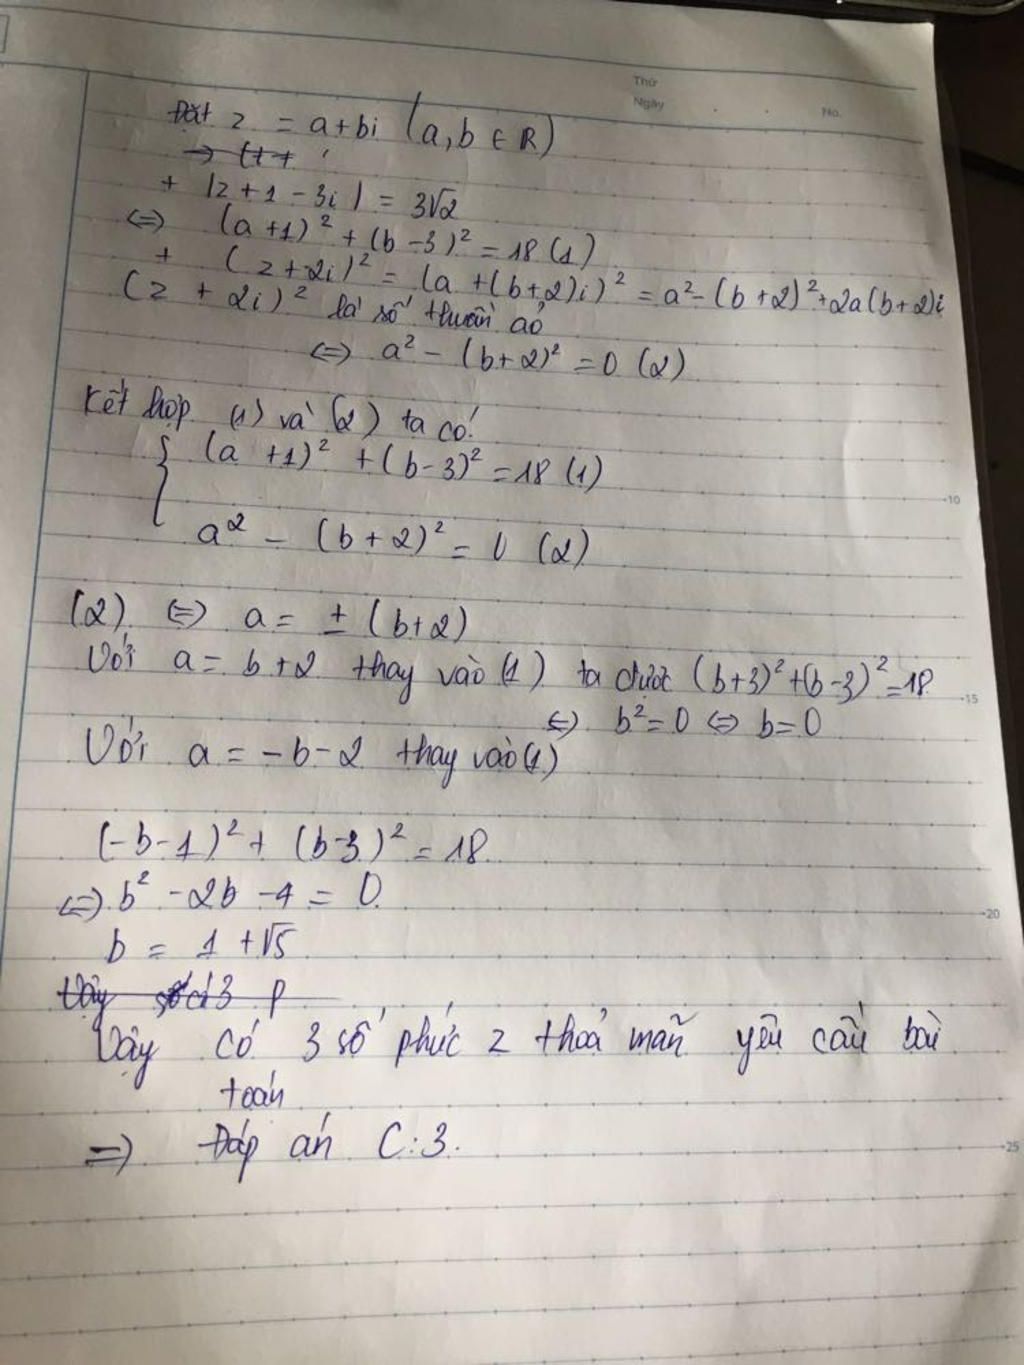 Thứ
Ngày
No.
Đặt z = a+bi (a,b ∈ R)
+ |z+1-3i| = 3√2
⇔ (a+1)² + (b-3)² = 18 (1)
+ (z+2i)² = (a+(b+2)i)² = a²-(b+2)²+2a(b+2)i
(z+2i)² là số thuần ảo
⇔ a² - (b+2)² = 0 (2)
Kết hợp (1) và (2) ta có
{ (a+1)² + (b-3)² = 18 (1)
a² - (b+2)² = 0 (2)
10
(2) ⇔ a = ± (b+2)
Với a = b+2 thay vào (1) ta được (b+3)²+(b-3)²=18
15
⇔ b²=0 ⇔ b=0
Với a = -b-2 thay vào (1)
(-b-1)² + (b-3)² = 18
⇔ b² - 2b - 4 = 0
20
b = 1 + √5
Vậy số 3 p
Vậy có 3 số phức z thoả mãn yêu cầu bài
toán
⇒ Đáp án C:3.
25